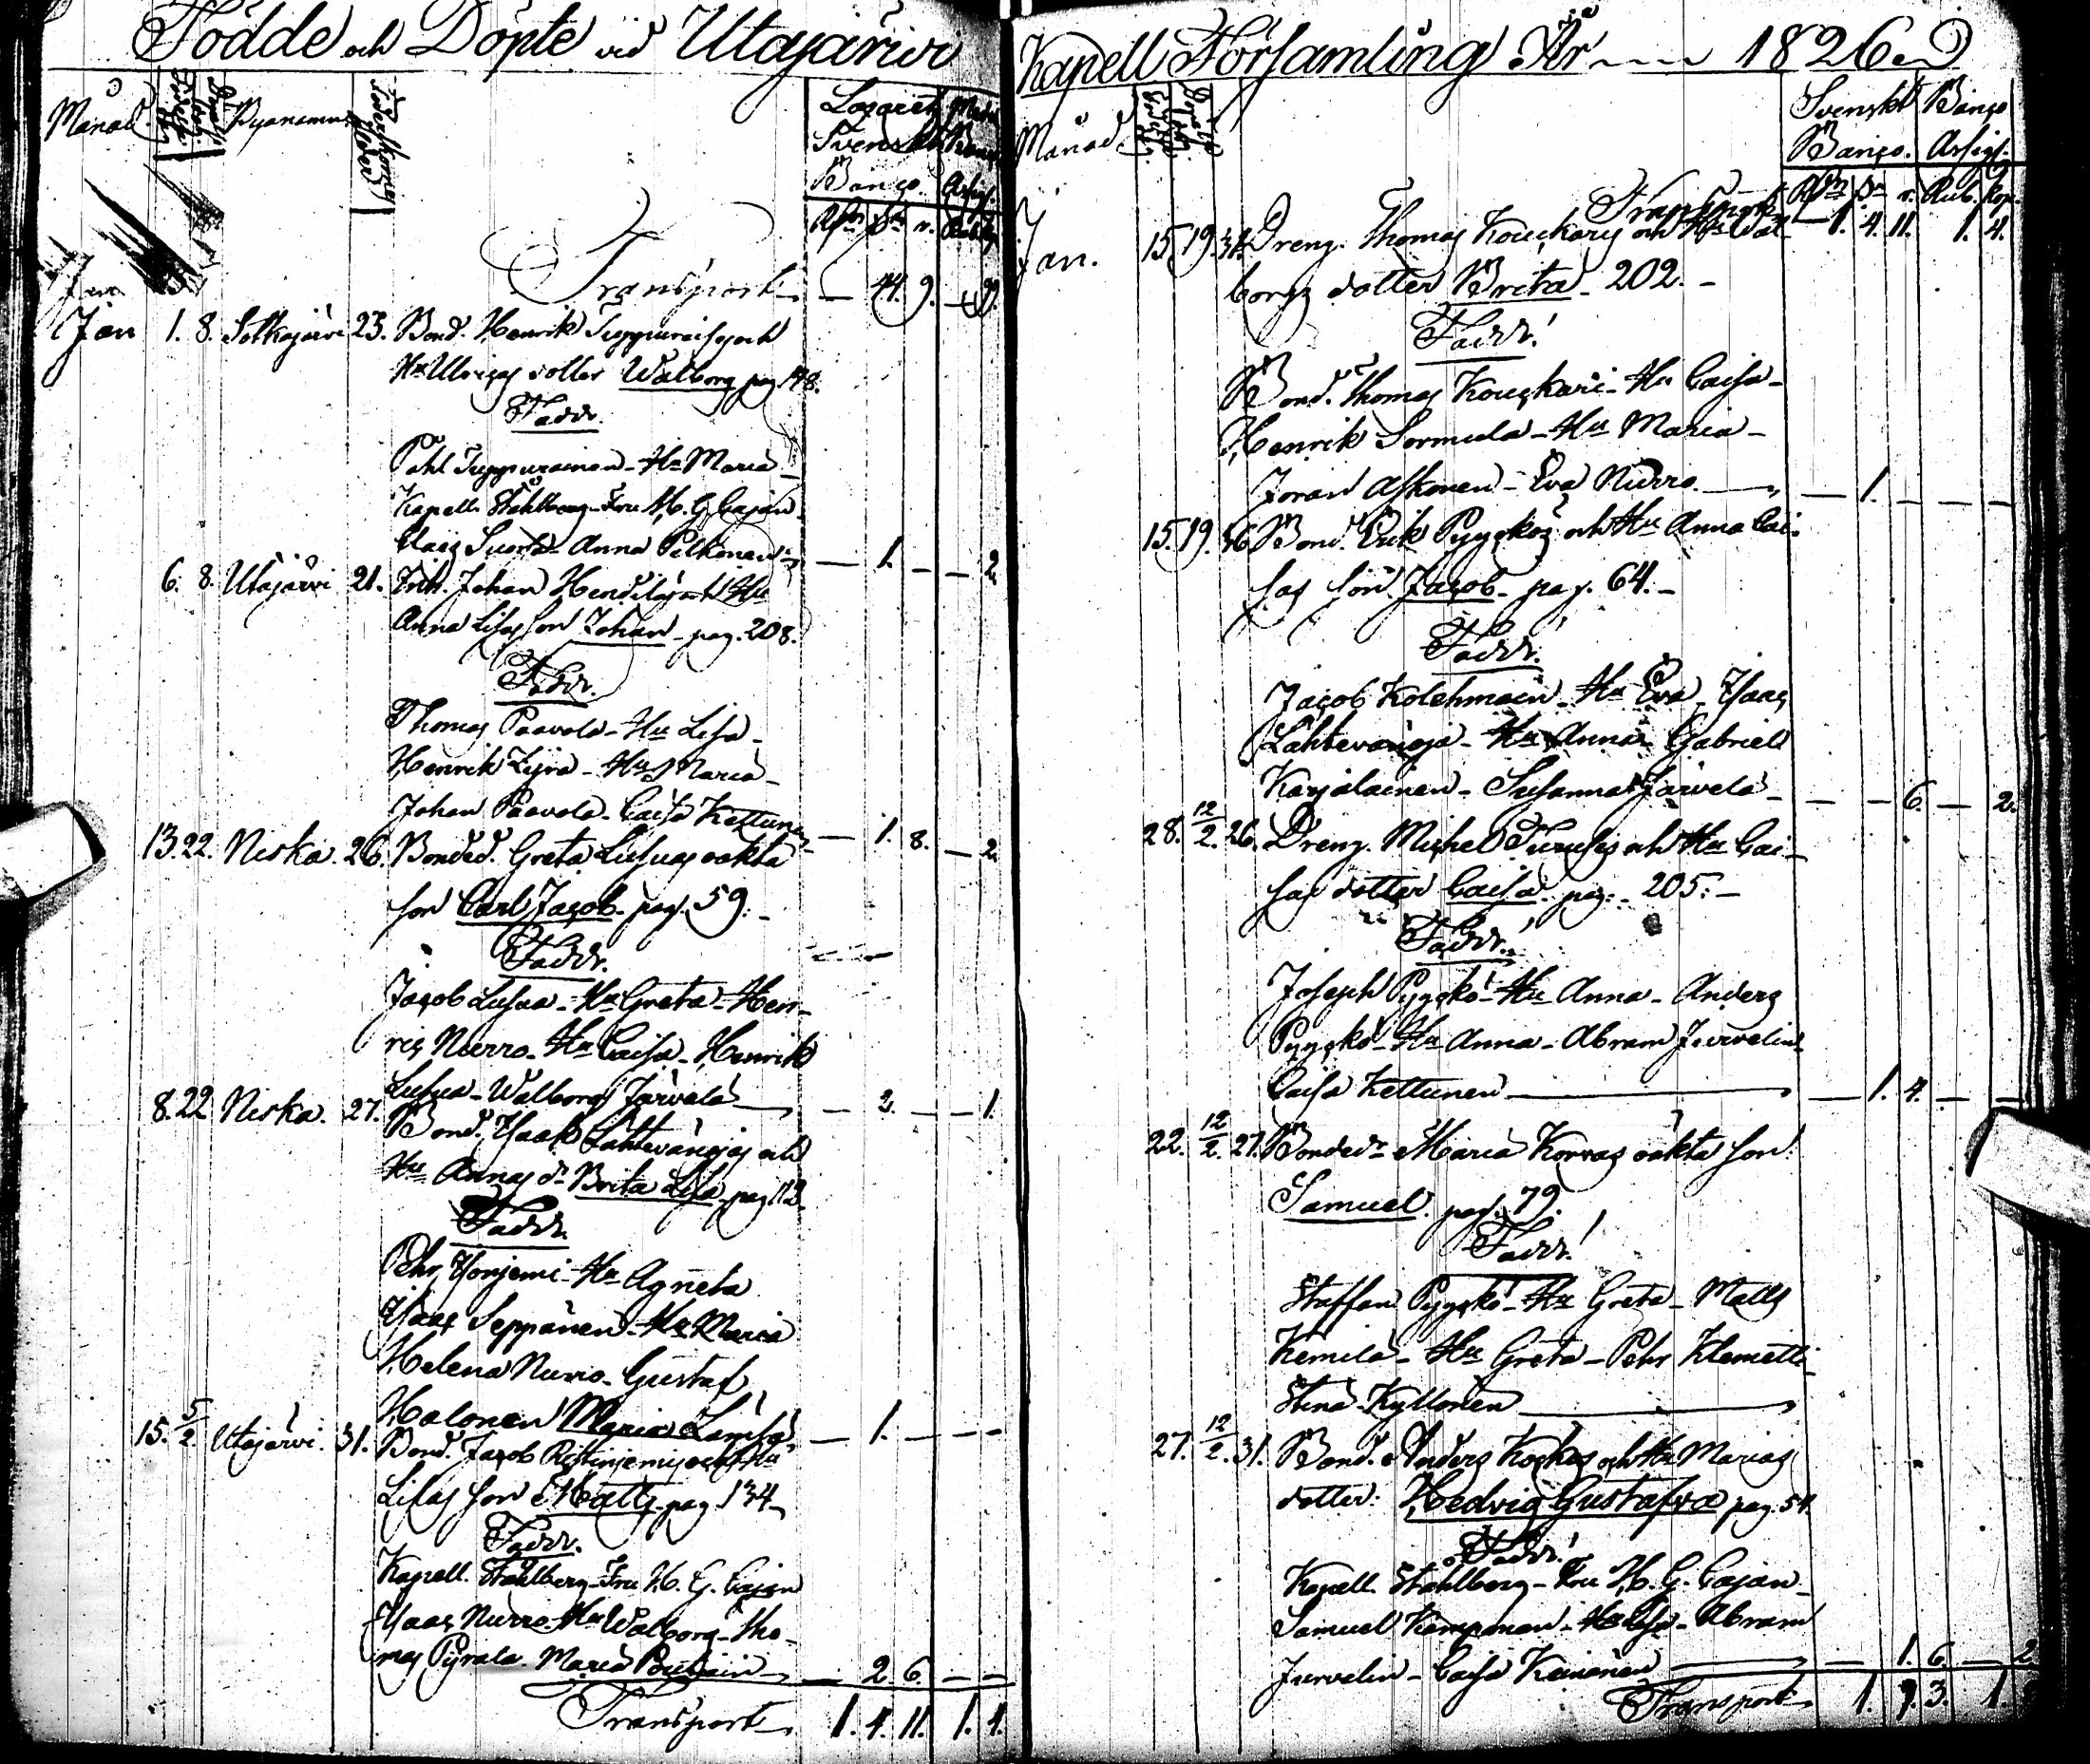 Födde och Döpte vid Utajärvi
Månad Byanamn
Svenskt
Banco. Assign.
Transport — 44. 9.
Jan 1. 8. Sotkajärvi 23. Bond. Henrik Tuppurais och
Hu Ulricas dotter Walborg pag. 148.
Fadd.
Pehl Tuppurainen - Hu Maria
Kapell. Ståhlberg - Fru H. G. Cajan
Claes Suorsa - Anna Pelkonen — 1. — — 2.
6. 8. Utajärvi 21. Johan Hendiläs och Hu
Anna Lisas son Johan - pag. 208.
Fadd.
Thomas Paavola - Hu Lisa -
Henrik - Hu Maria -
Johan Paavola - Caisa Kettunen — 1. 8. — 2.
13. 22. Niska. 26. Bonded. Greta Lusuas oäkta
son Carl Jacob - pag. 59. -
Fadd.
Jacob Lusua - Hu Greta - Hen-
ric Nurro - Hu Caisa - Henrik
Lusua - Walborg Järvelä — 2. — — 1.
8. 22 Niska. 27. Bond. Isaak Lähtevänojas och
Hu Annas dr Brita Lisa - pag. 113.
Fadd.
Pehr Honjemi - Hu Agneta
Isaac Seppänen - Hu Maria
Helena Nurro - Gustaf
Halonen Maria — 1. — — -
15. 5/2. Utajärvi. 31. Bond. Jacob Ristinjemis och Hu
Lisas son Matts - pag. 134 -
Fadd.
Kapell. Ståhlberg - Fru H. G. Cajan
Isaac Nurro - Hu Walborg - Tho-
mas Pyrala - Maria — 2. 6. — —
Transport 1. 4. 11. 1. 4.
Kapell Församling År — 1826.
Månad
Svenskt Banco
Banco. Assign.
Rub. Kop.
Transport — 1. 4. 11. 1. 4.
Jan. 15. 19. 31. Dreng. Thomas Kouckaris och Hu Wal-
borgs dotter Brita - 202. -
Fadd!
Bond. Thomas Kouckari - Hu Caisa -
Henrik Sormula - Hu Maria -
Joran Askonen - Eva Nurro — 1. — — —
15. 19. 36. Bond. Erik Pyyckös och Hu Anna Cai-
sas son Jacob - pag. 64. -
Fadd!
Jacob Kolehmain - Hu Eva - Isaac
Lähtevänoja - Hu Anna - Gabriel
Karjalainen - Susanna Järvelä — — 6. — 2.
28. 12/2. 26. Dreng. Michel och Hu Cai-
sas dotter Caisa. pag. - 205. -
Fadd!
Joseph Pyyckö - Hu Anna - Anders
Pyyckö - Hu Anna - Abram Jurvelin
Caisa Kettunen — 1. 4. — —
22. 12/2. 27. Bondedr Maria Korvas oäkta son
Samuel. pag. 79.
Fadd!
Staffan Pyyckö - Hu Greta - Matts
Kemilä - Hu Greta - Pehr Klemetti
Stina Kyllönen —
27. 12/2. 31. Bond. Anders Koskos och Hu Marias
dotter: Hedvig Gustafva pag. 54.
Fadd!
Kapell. Ståhlberg - Fru H. G. Cajan -
Samuel - Hu Lisa - Abram
Jurvelin - Caisa Keinänen — 1. 6. — 2.
Transport 1. 9. 3. 1.